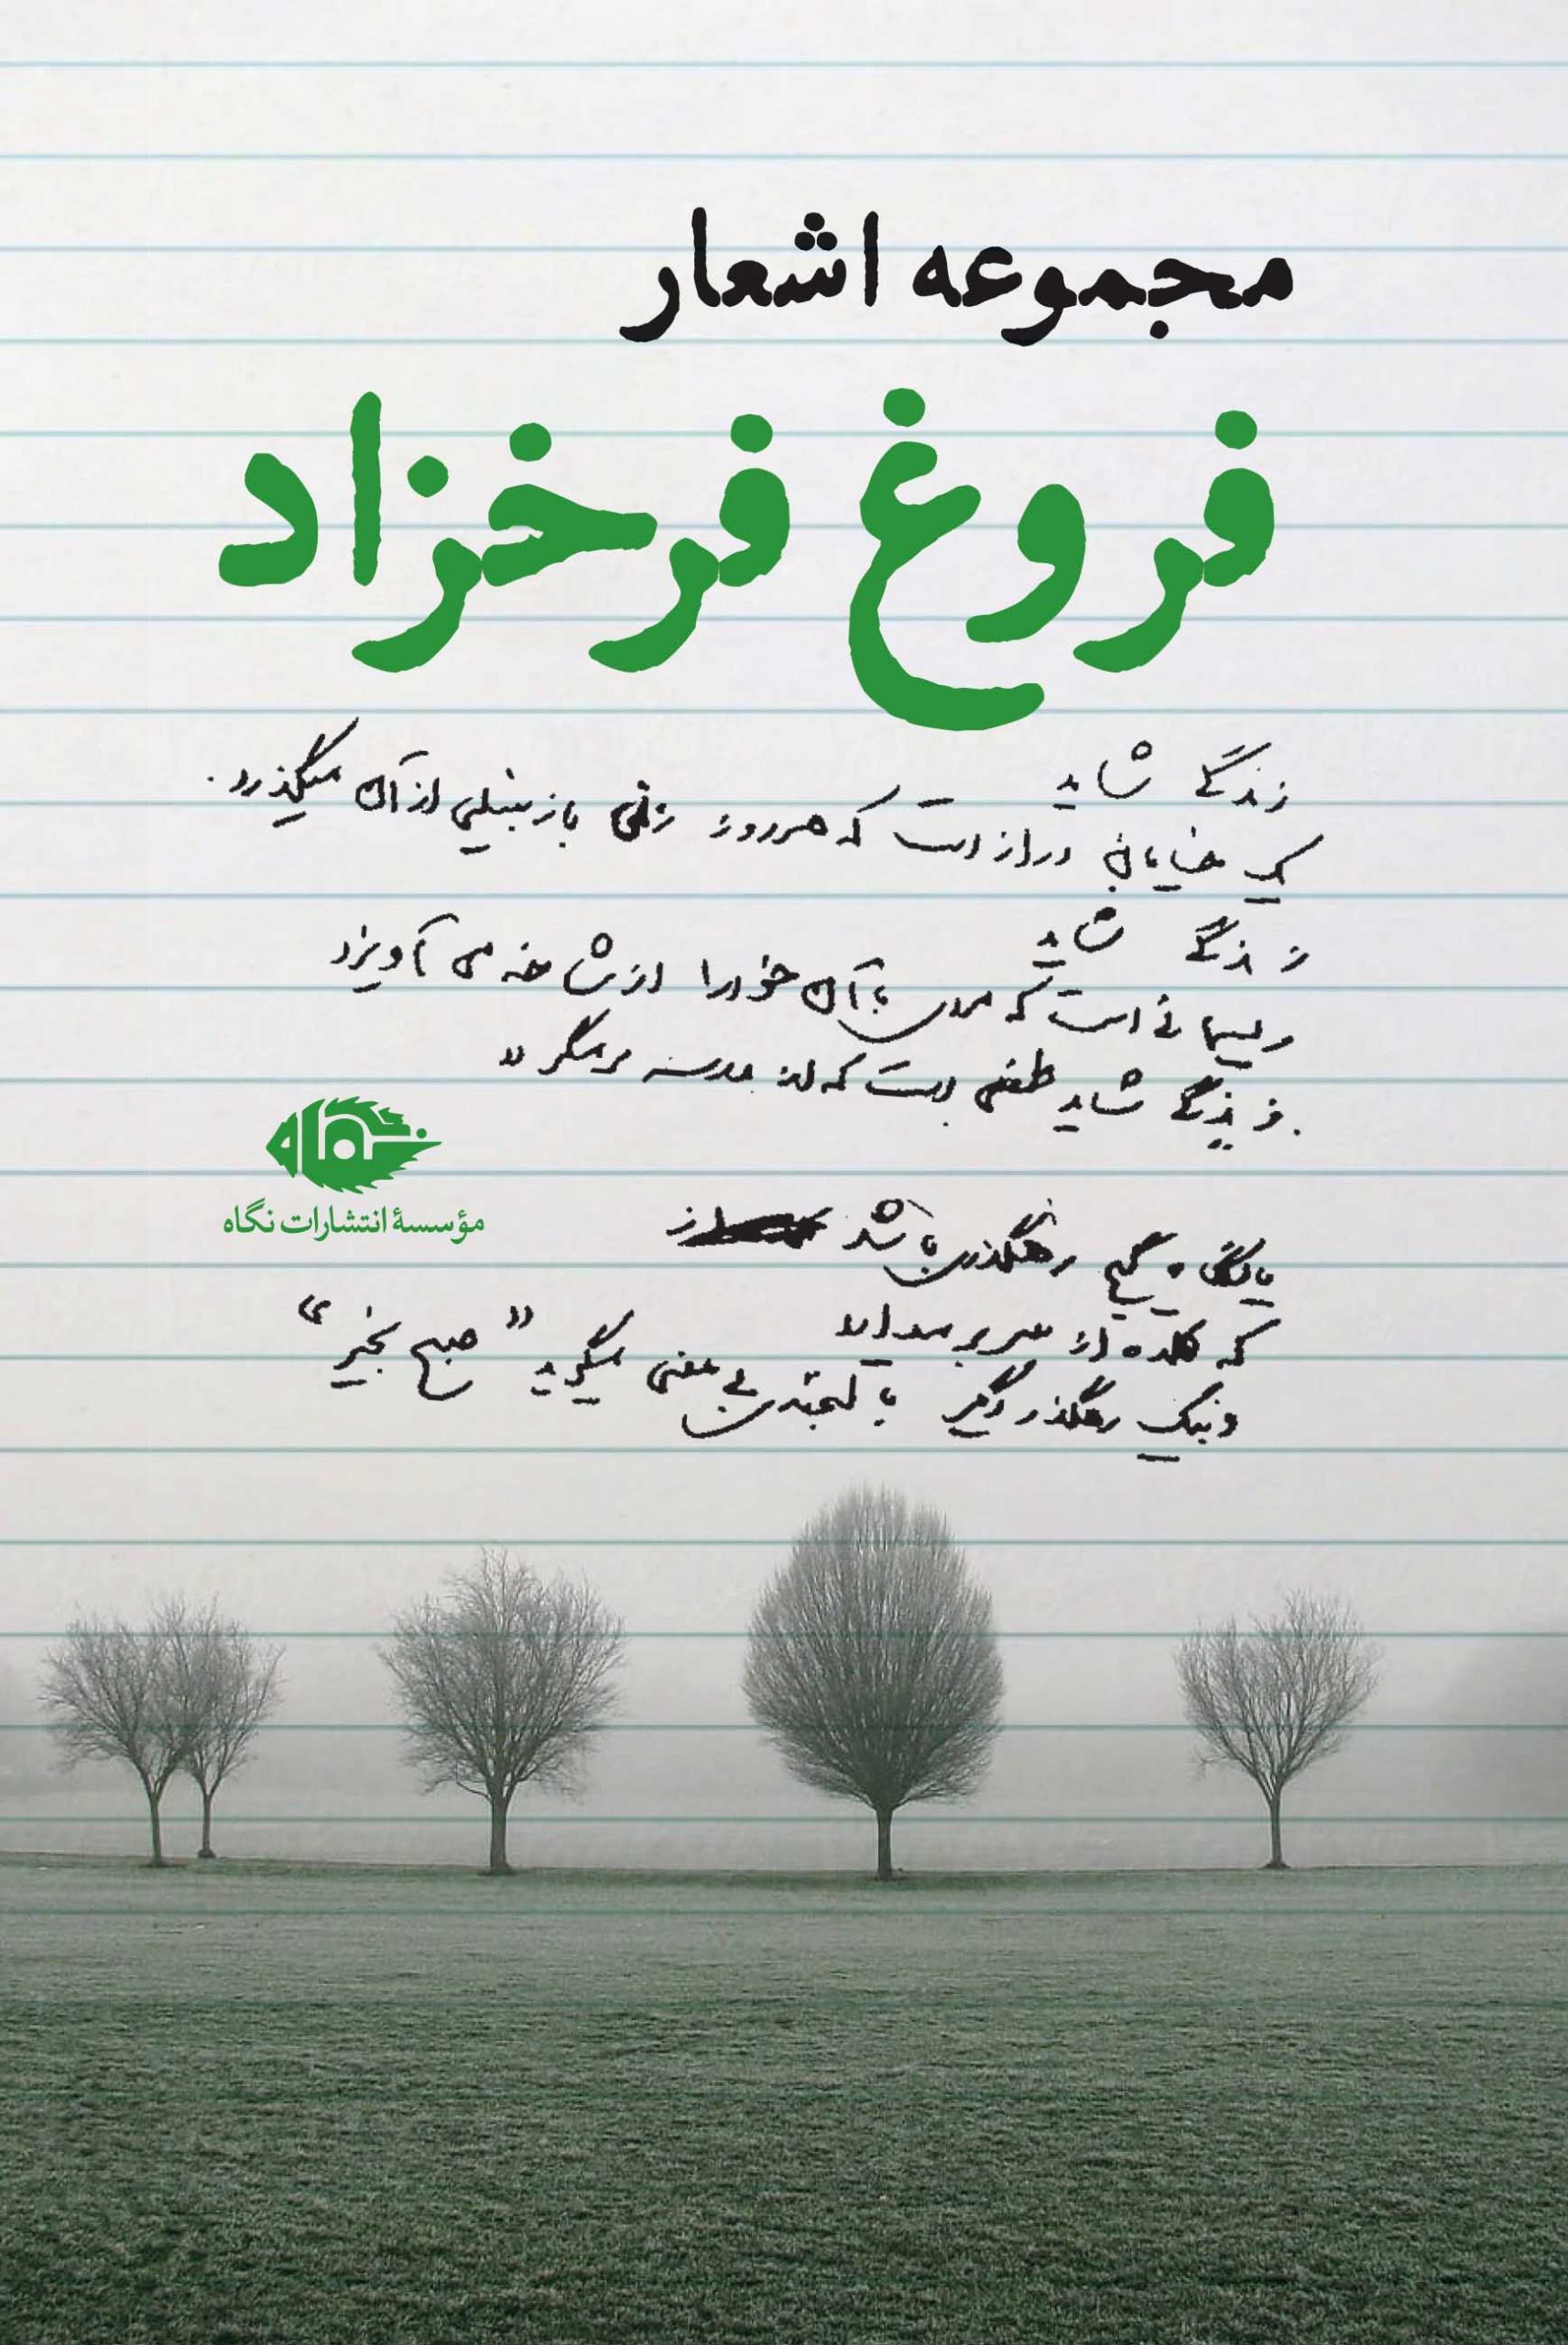 مجموعه اشعار
فروغ فرخزاد
زندگی شاید
یک خیابان دراز است که هر روز زنی با زنبیلی از آن میگذرد.
زندگی شاید
ریسمانی است که مردی با آن خود را از شاخه می آویزد
زندگی شاید طفلی است که از مدرسه برمیگردد
یا نگاه گیج رهگذری باشد
که کلاه از سر بر میدارد
و بیک رهگذر دیگر با لبخندی بی معنی میگوید "صبح بخیر"
نگاه
مؤسسهٔ انتشارات نگاه